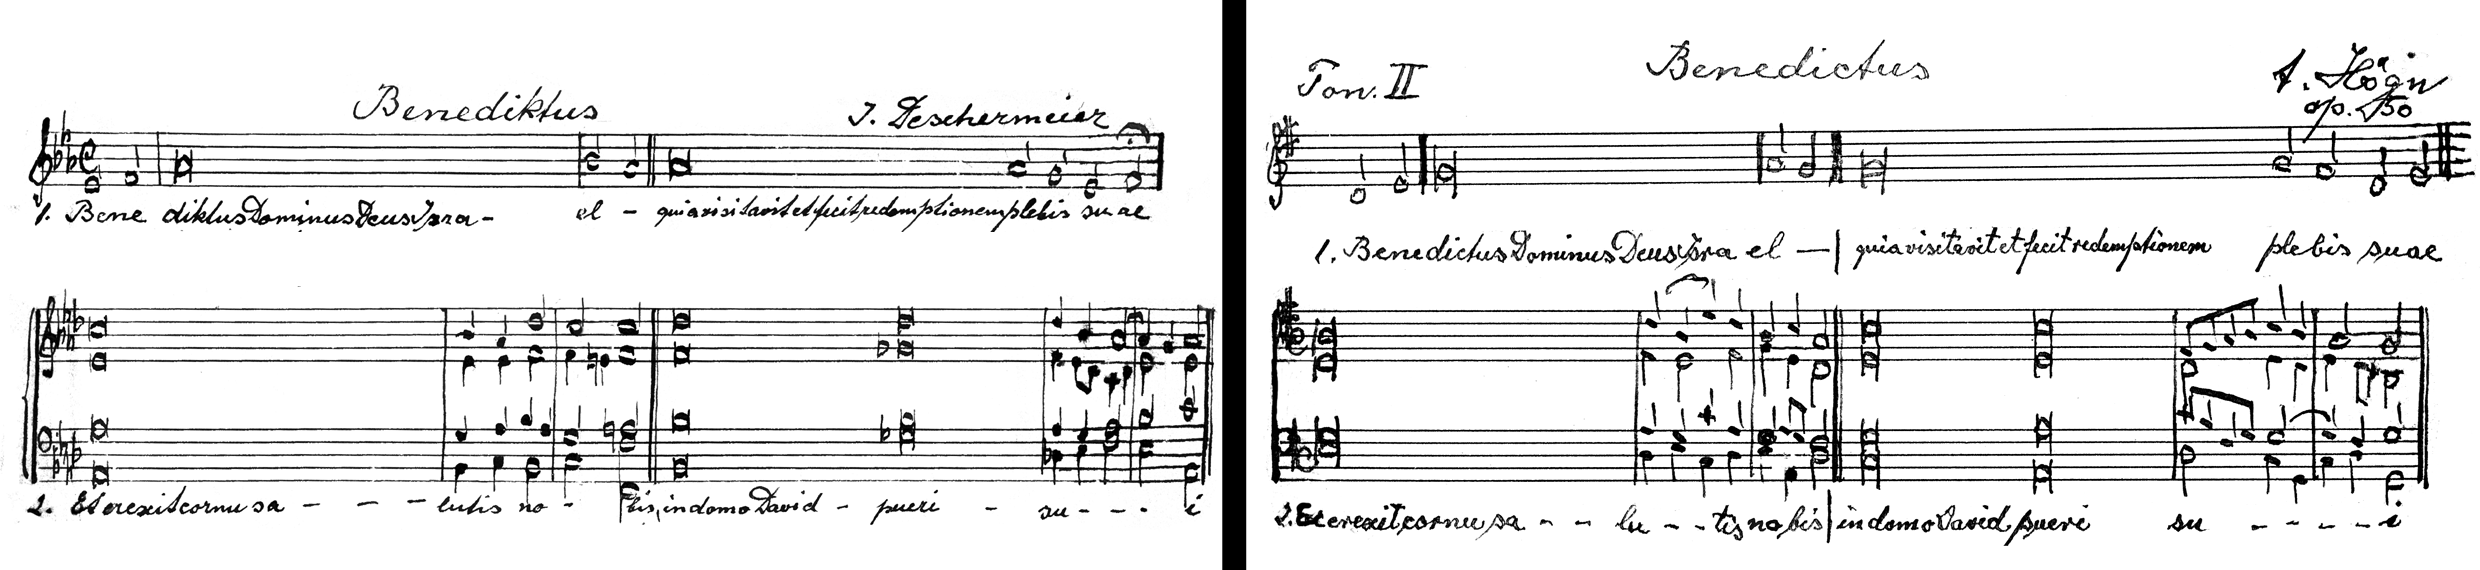 Benediktus
J. Deschermeier
1. Bene diktus Dominus Deus Isra - el - quia visitavit et fecit redemptionem plebis suae
2. Et erexit cornu sa - - - lutis no - bis, in domo David - pueri - su - - - i
Ton. II
Benedictus
A. Högn
op. 50
1. Benedictus Dominus Deus Isra el - | quia visitavit et fecit redemptionem plebis suae
2. Et erexit cornu sa - - lu - - tis no bis | in domo David pueri su - - - - i